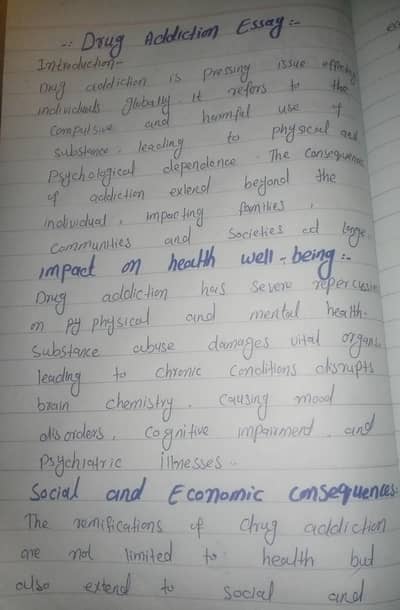 -: Drug Addiction Essay:-
Introduction:-
Drug addiction is pressing issue effecting
individuals globally. It refers to the
compulsive and harmful use of
substance. leading to physical and
Psychological dependence. The consequence
of addiction extend beyond the
individual, impacting families,
communities and societies at large.
impact on health well-being:-
Drug addiction has severe repercussion
on py physical and mental health.
Substance abuse damages vital organs
leading to chronic conditions disrupts
brain chemistry. causing mood
disorders. Cognitive impairment. and
Psychiatric illnesses.
Social and Economic consequences.
The remifications of drug addiction
are not limited to health bud
also extend to social and